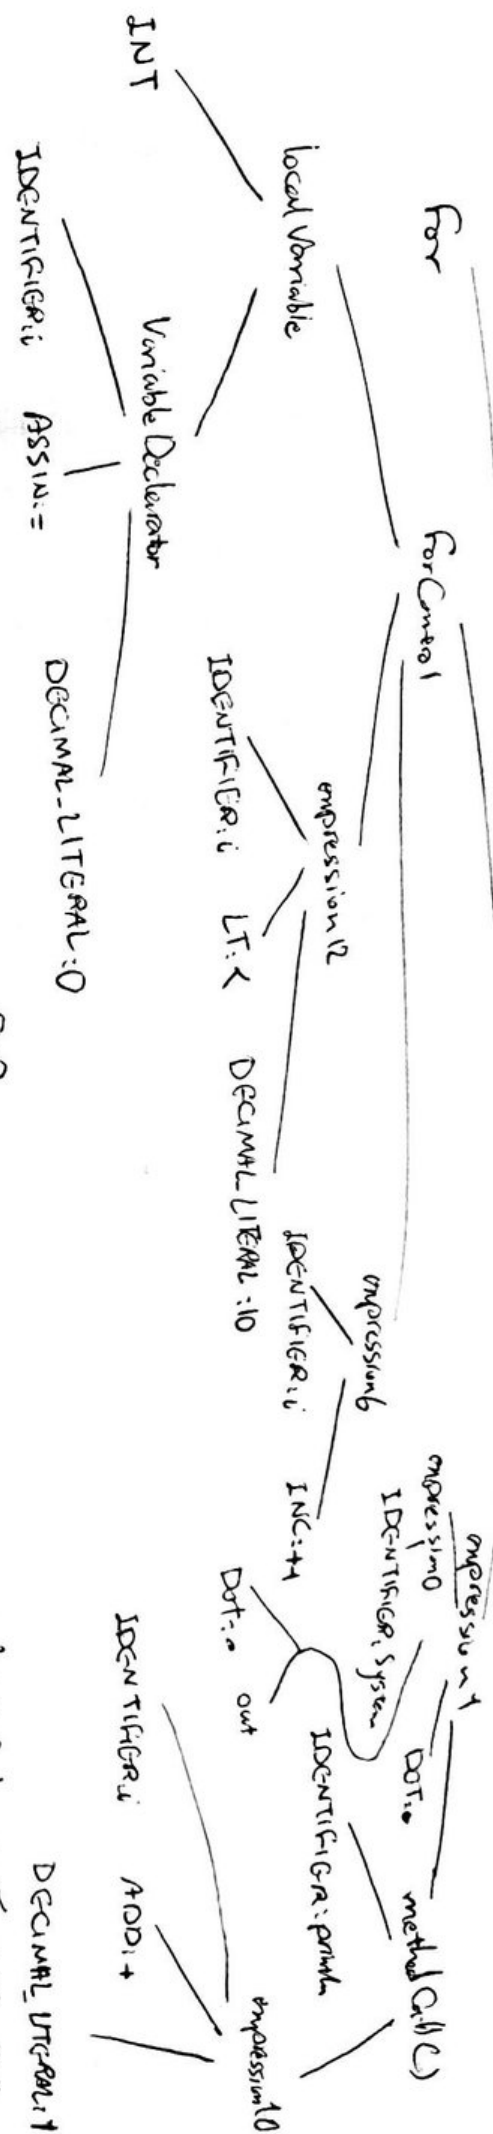 For
ForControl
local Variable
INT
Variable Declarator
IDENTIFIER:i
ASSIN:=
DECIMAL_LITERAL:0
expression12
IDENTIFIER:i
LT:<
DECIMAL_LITERAL:10
expression6
IDENTIFIER:i
INC:++
expression1
expression0
IDENTIFIER:System
DOT:.
out
DOT:.
methodCall()
IDENTIFIER:println
expression10
IDENTIFIER:i
ADD:+
DECIMAL_LITERAL:1